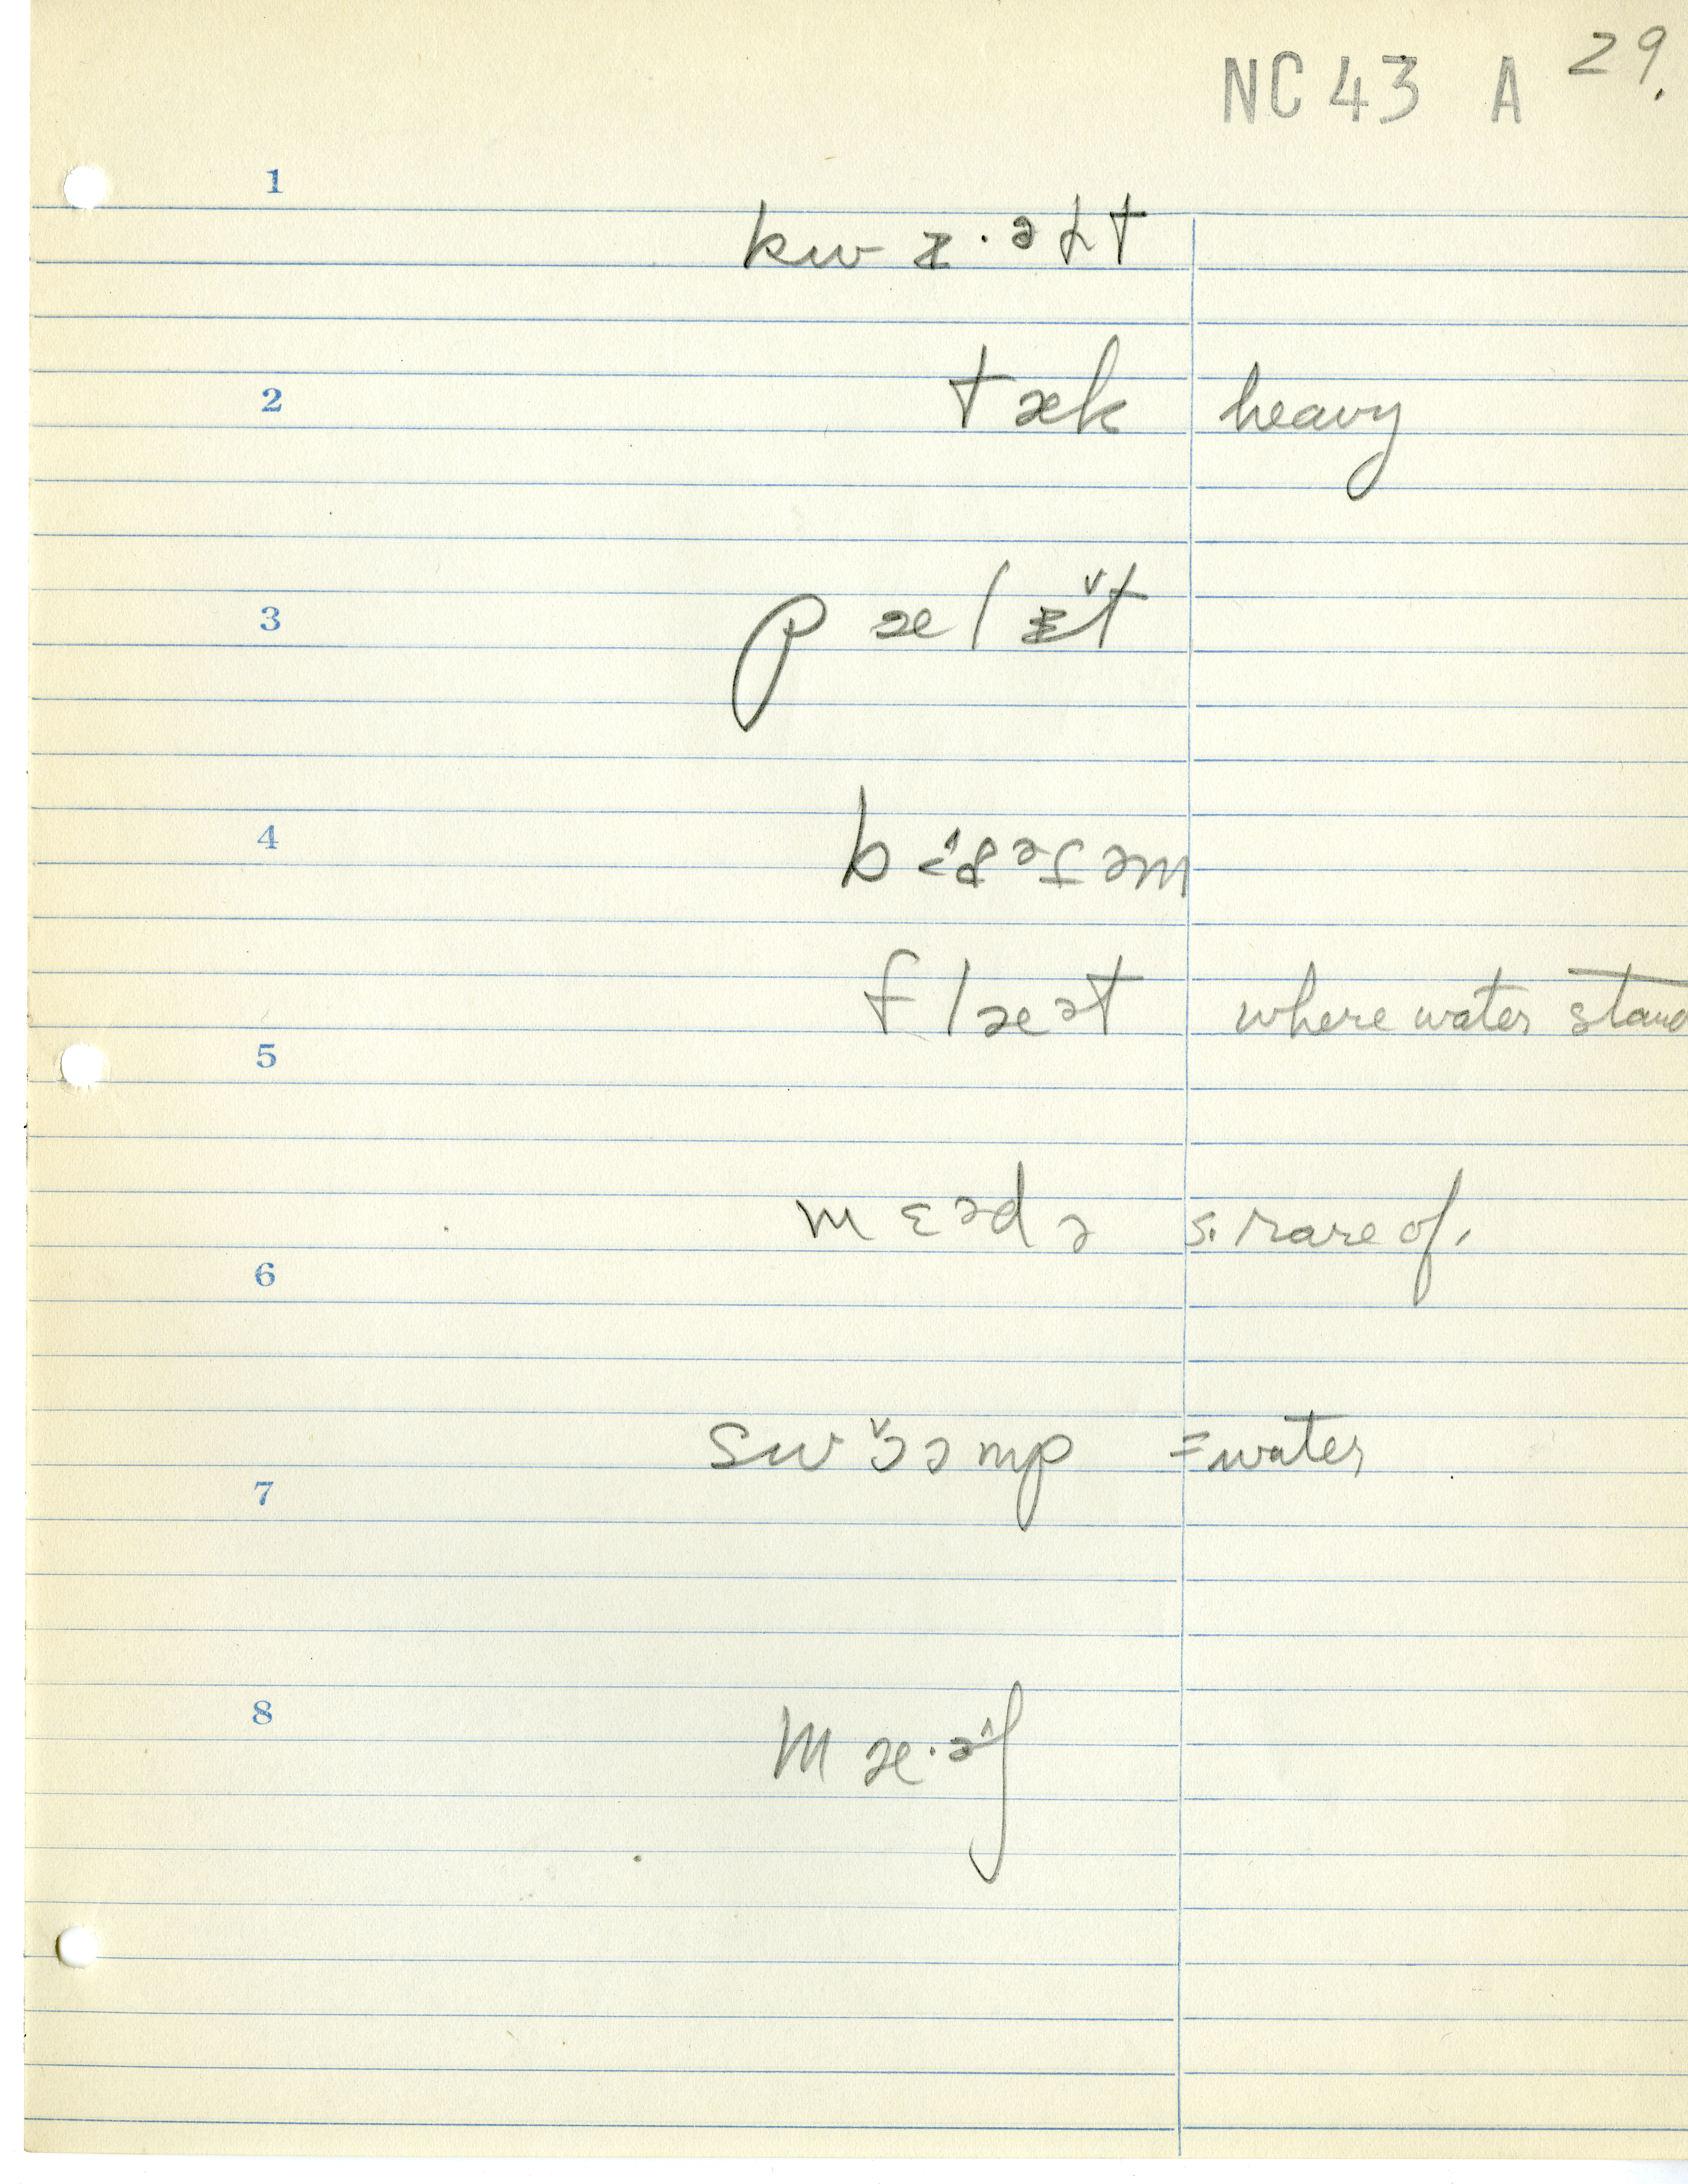 NC 43 A 29.
1
kw ɪ·əɫt
2
tæk heavy
3
pælɪ̌t
4
fl æət where water stand
5
mɛədə s. rare of.
6
swɔ̌əmp = water
7
8
mæ·ə̂ʃ